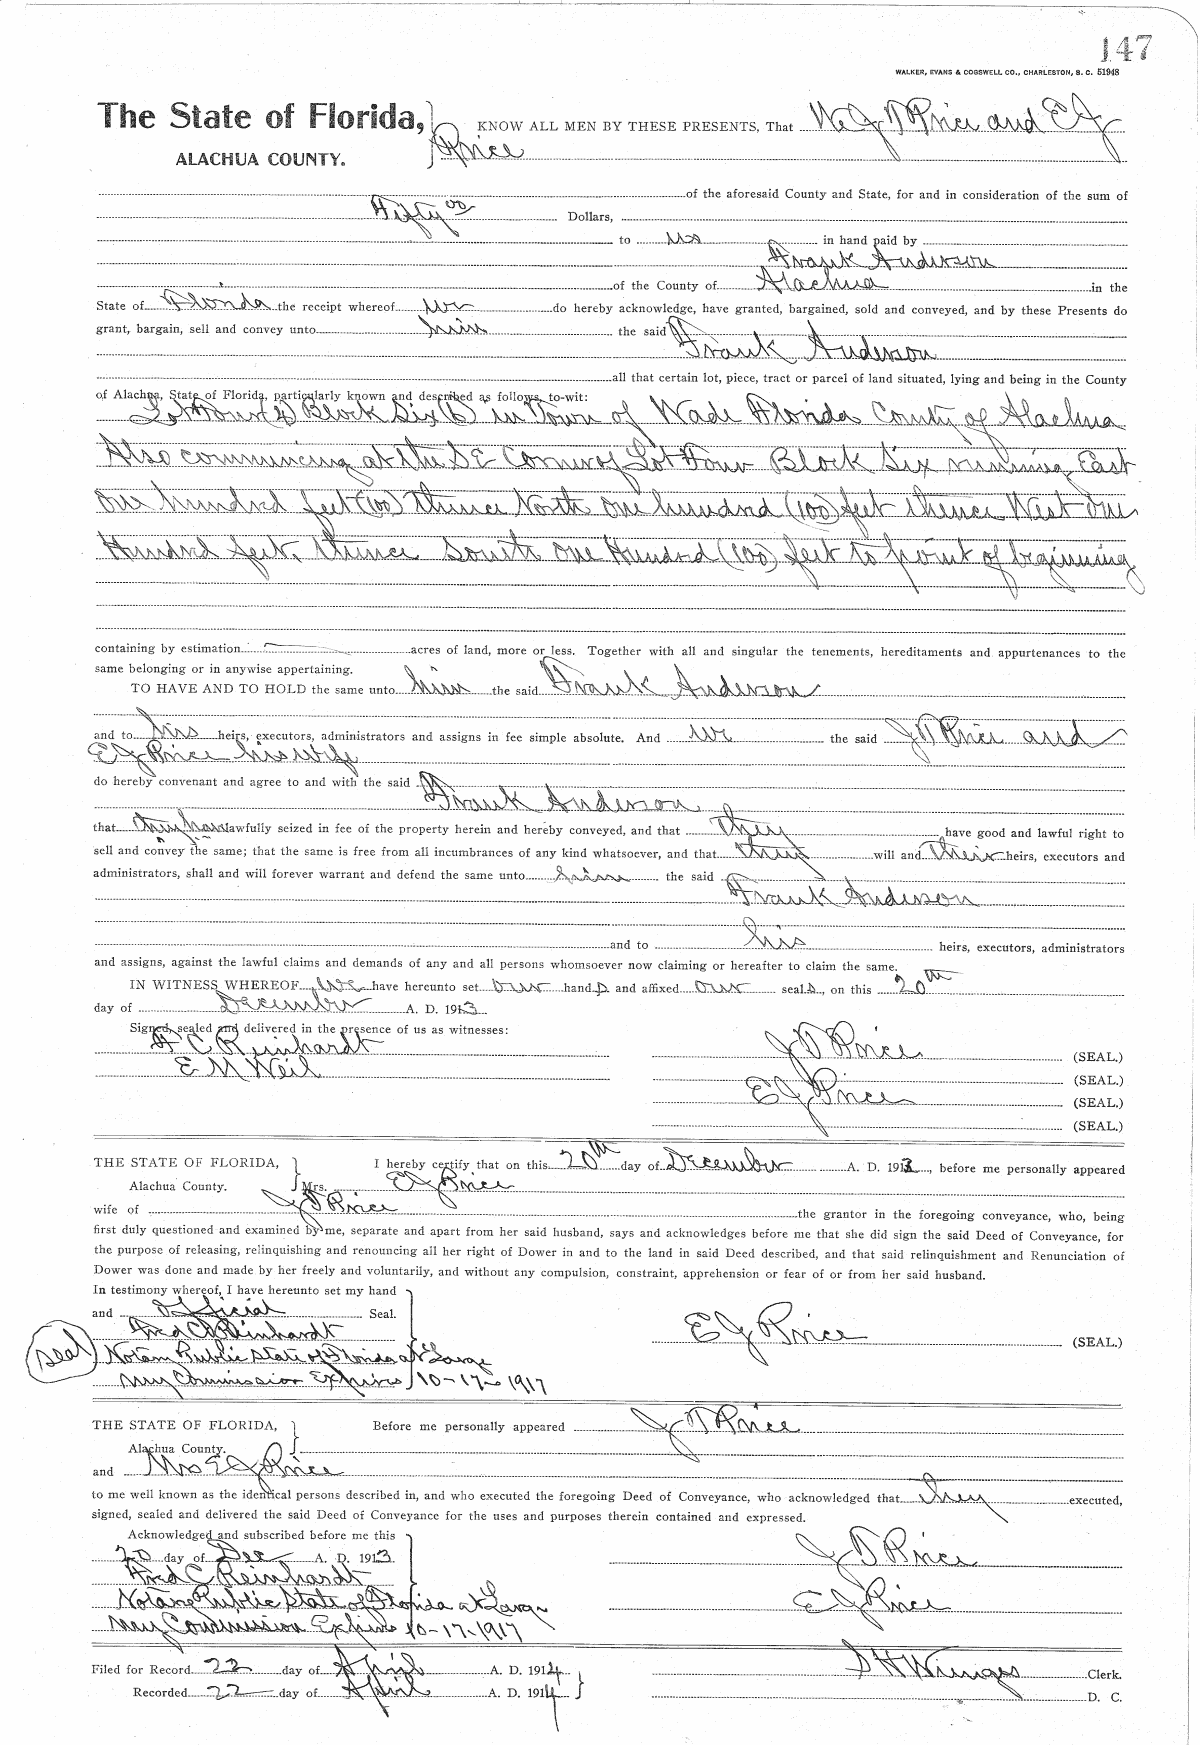 147
WALKER, EVANS & COGSWELL CO., CHARLESTON, S. C. 51948
The State of Florida, KNOW ALL MEN BY THESE PRESENTS, That We J D Price and E J
ALACHUA COUNTY. Price
of the aforesaid County and State, for and in consideration of the sum of
Fifty 00 Dollars,
to us in hand paid by
Frank Anderson
of the County of Alachua in the
State of Florida the receipt whereof we do hereby acknowledge, have granted, bargained, sold and conveyed, and by these Presents do
grant, bargain, sell and convey unto him the said
Frank Anderson
all that certain lot, piece, tract or parcel of land situated, lying and being in the County
of Alachua, State of Florida, particularly known and described as follows, to-wit:
Lot Four (4) Block Six (6) in Town of Wade Florida County of Alachua
Also commencing at the SE Corner of Lot Four Block Six running East
One hundred feet (100) thence North one hundred (100) feet thence West one
Hundred feet, thence South One Hundred (100) feet to point of beginning
containing by estimation acres of land, more or less. Together with all and singular the tenements, hereditaments and appurtenances to the
same belonging or in anywise appertaining.
TO HAVE AND TO HOLD the same unto him the said Frank Anderson
and to his heirs, executors, administrators and assigns in fee simple absolute. And we the said J D Price and
E J Price his wife
do hereby convenant and agree to and with the said
Frank Anderson
that they have lawfully seized in fee of the property herein and hereby conveyed, and that they have good and lawful right to
sell and convey the same; that the same is free from all incumbrances of any kind whatsoever, and that they will and their heirs, executors and
administrators, shall and will forever warrant and defend the same unto him the said
Frank Anderson
and to his heirs, executors, administrators
and assigns, against the lawful claims and demands of any and all persons whomsoever now claiming or hereafter to claim the same.
IN WITNESS WHEREOF we have hereunto set our hand s and affixed our seal s, on this 20th
day of December A. D. 1913
Signed, sealed and delivered in the presence of us as witnesses:
F C Reinhardt
J D Price (SEAL.)
E M Weil
(SEAL.)
E J Price (SEAL.)
(SEAL.)
THE STATE OF FLORIDA, I hereby certify that on this 20th day of December A. D. 1913, before me personally appeared
Alachua County. Mrs. E J Price
wife of J D Price the grantor in the foregoing conveyance, who, being
first duly questioned and examined by me, separate and apart from her said husband, says and acknowledges before me that she did sign the said Deed of Conveyance, for
the purpose of releasing, relinquishing and renouncing all her right of Dower in and to the land in said Deed described, and that said relinquishment and Renunciation of
Dower was done and made by her freely and voluntarily, and without any compulsion, constraint, apprehension or fear of or from her said husband.
In testimony whereof, I have hereunto set my hand
and official Seal.
Fred C Reinhardt
E J Price (SEAL.)
seal Notary Public State of Florida at Large
My Commission Expires 10-17-1917
THE STATE OF FLORIDA, Before me personally appeared J D Price
Alachua County.
and Mrs E J Price
to me well known as the identical persons described in, and who executed the foregoing Deed of Conveyance, who acknowledged that they executed,
signed, sealed and delivered the said Deed of Conveyance for the uses and purposes therein contained and expressed.
Acknowledged and subscribed before me this
20 day of Dec A. D. 1913.
J D Price
Fred C Reinhardt
Notary Public State of Florida at Large
E J Price
My Commission Expires 10-17-1917
Filed for Record 22 day of April A. D. 1914
S H Wienges Clerk.
Recorded 22 day of April A. D. 1914
D. C.